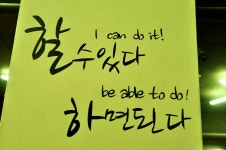 I can do it!
할 수 있다
be able to do!
하면 된다